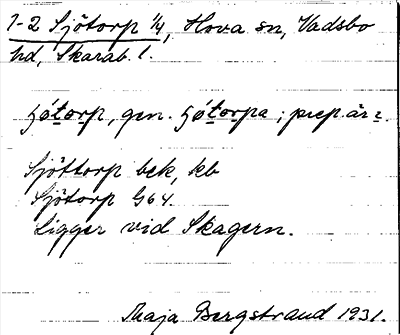 1-2 Sjötorp 1/4, Hova sn, Vadsbo
hd, Skarab. l.
ʃótorp, gen. ʃótorpa; prep. är:
Sjöttorp bek, kb
Sjötorp G64.
Ligger vid Skagern.
Maja Bergstrand 1931.